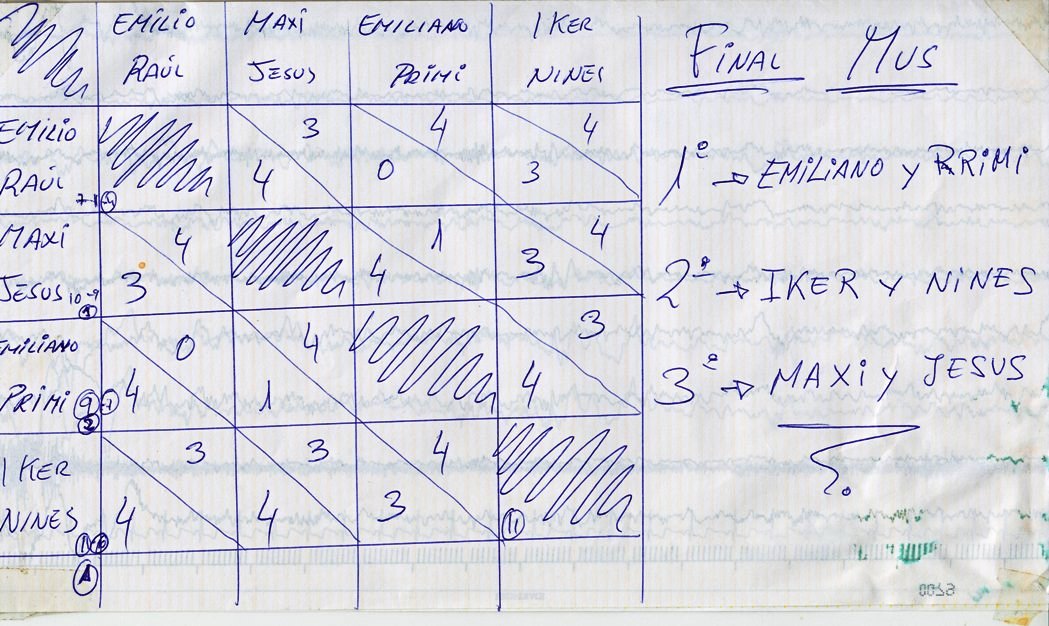 EMILIO MAXI EMILIANO IKER
RAÚL JESUS PRIMI NINES
FINAL MUS
EMILIO 3 4 4
RAÚL 4 0 3
7-1
1º → EMILIANO Y PRIMI
MAXI 4 1 4
JESUS 10-9 3 4 3
1
2º → IKER Y NINES
EMILIANO 0 4 3
PRIMI 9 4 1 4
2
3º → MAXI Y JESUS
IKER 3 3 4
NINES 4 4 3 11
A
0053